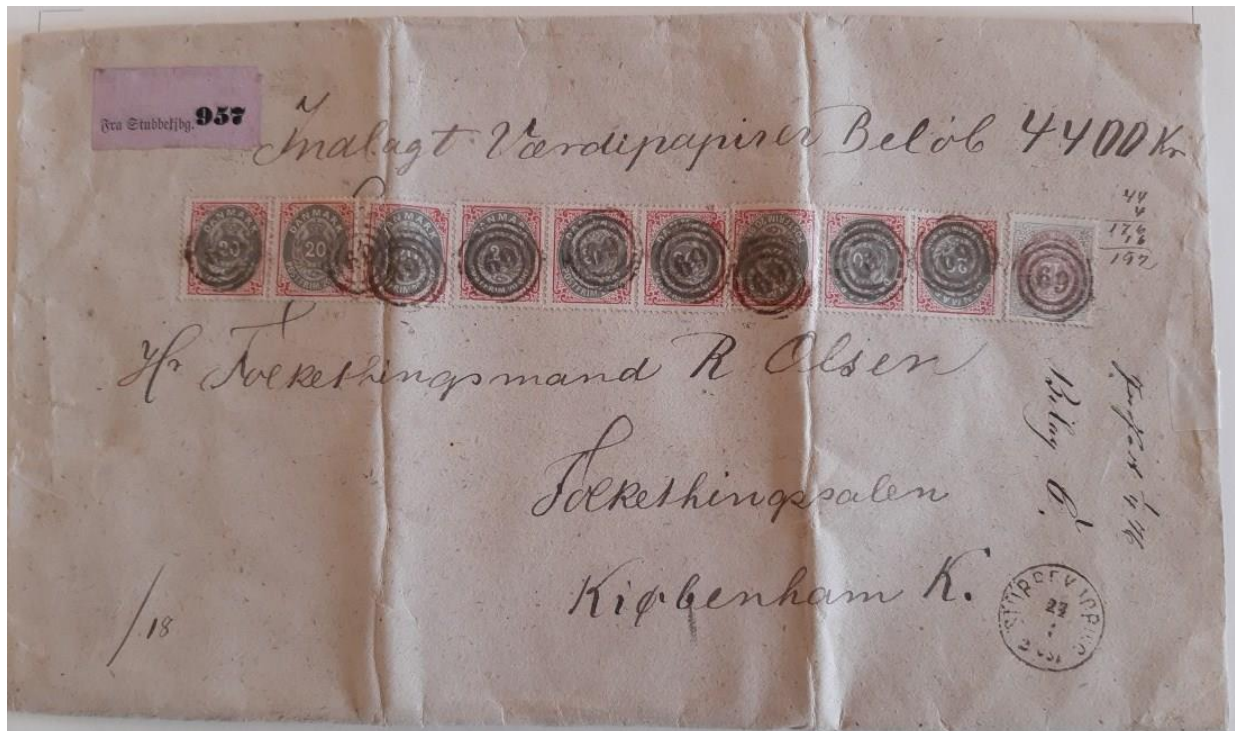 Fra Stubbekjbg. 957
Indlagt Værdipapirer Beløb 4400 Kr
44
4
176
16
192
DANMARK
20
Hr Folkethingsmand R Olsen
Folkethingssalen
Kiøbenhavn K.
Bilag
69
/18